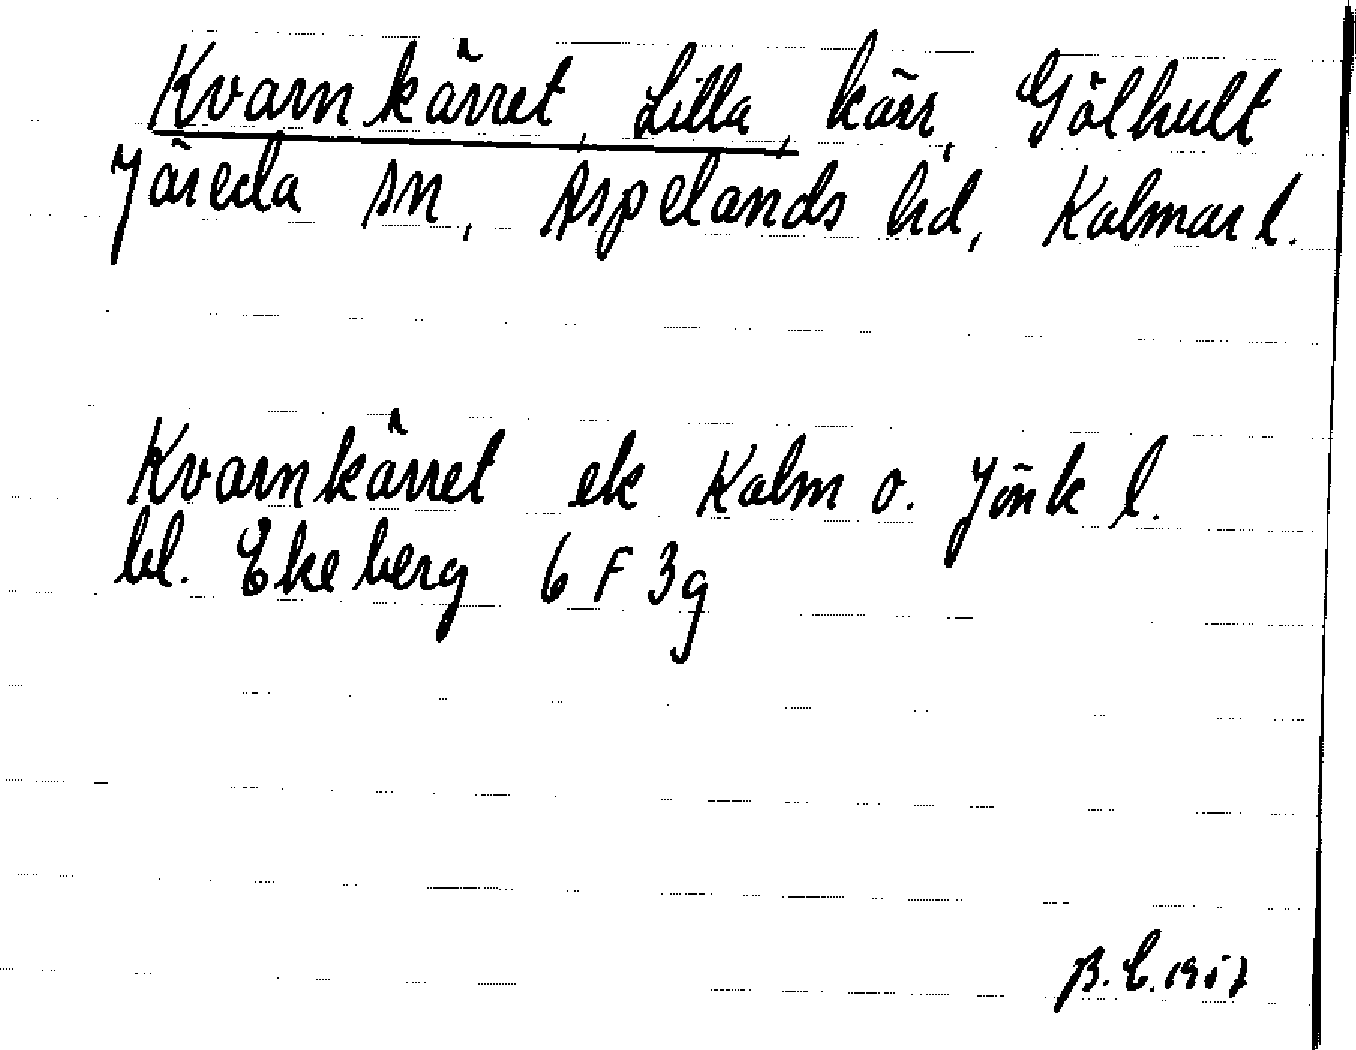 Kvarnkärret, Lilla, kärr, Gölhult
Järeda sn, Aspelands hd, Kalmar l.
Kvarnkärret ek Kalm o. Jönk l.
bl. Ekeberg 6 F 3g